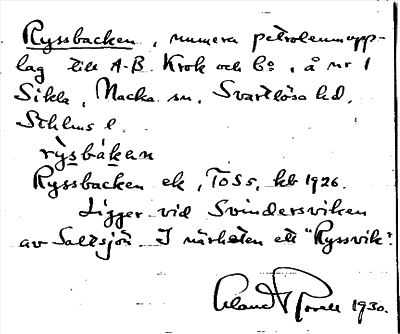 Ryssbacken, numera petroleumupp-
lag till A-B. Krok och Co, å nr 1
Sikla, Nacka sn, Svartlösa hd,
Sthlms l.
rysbakan
Ryssbacken ek, TOSS, kb 1926.
Ligger vid Svindersviken
av Saltsjön. I närheten ett "Ryssvik".
1930.